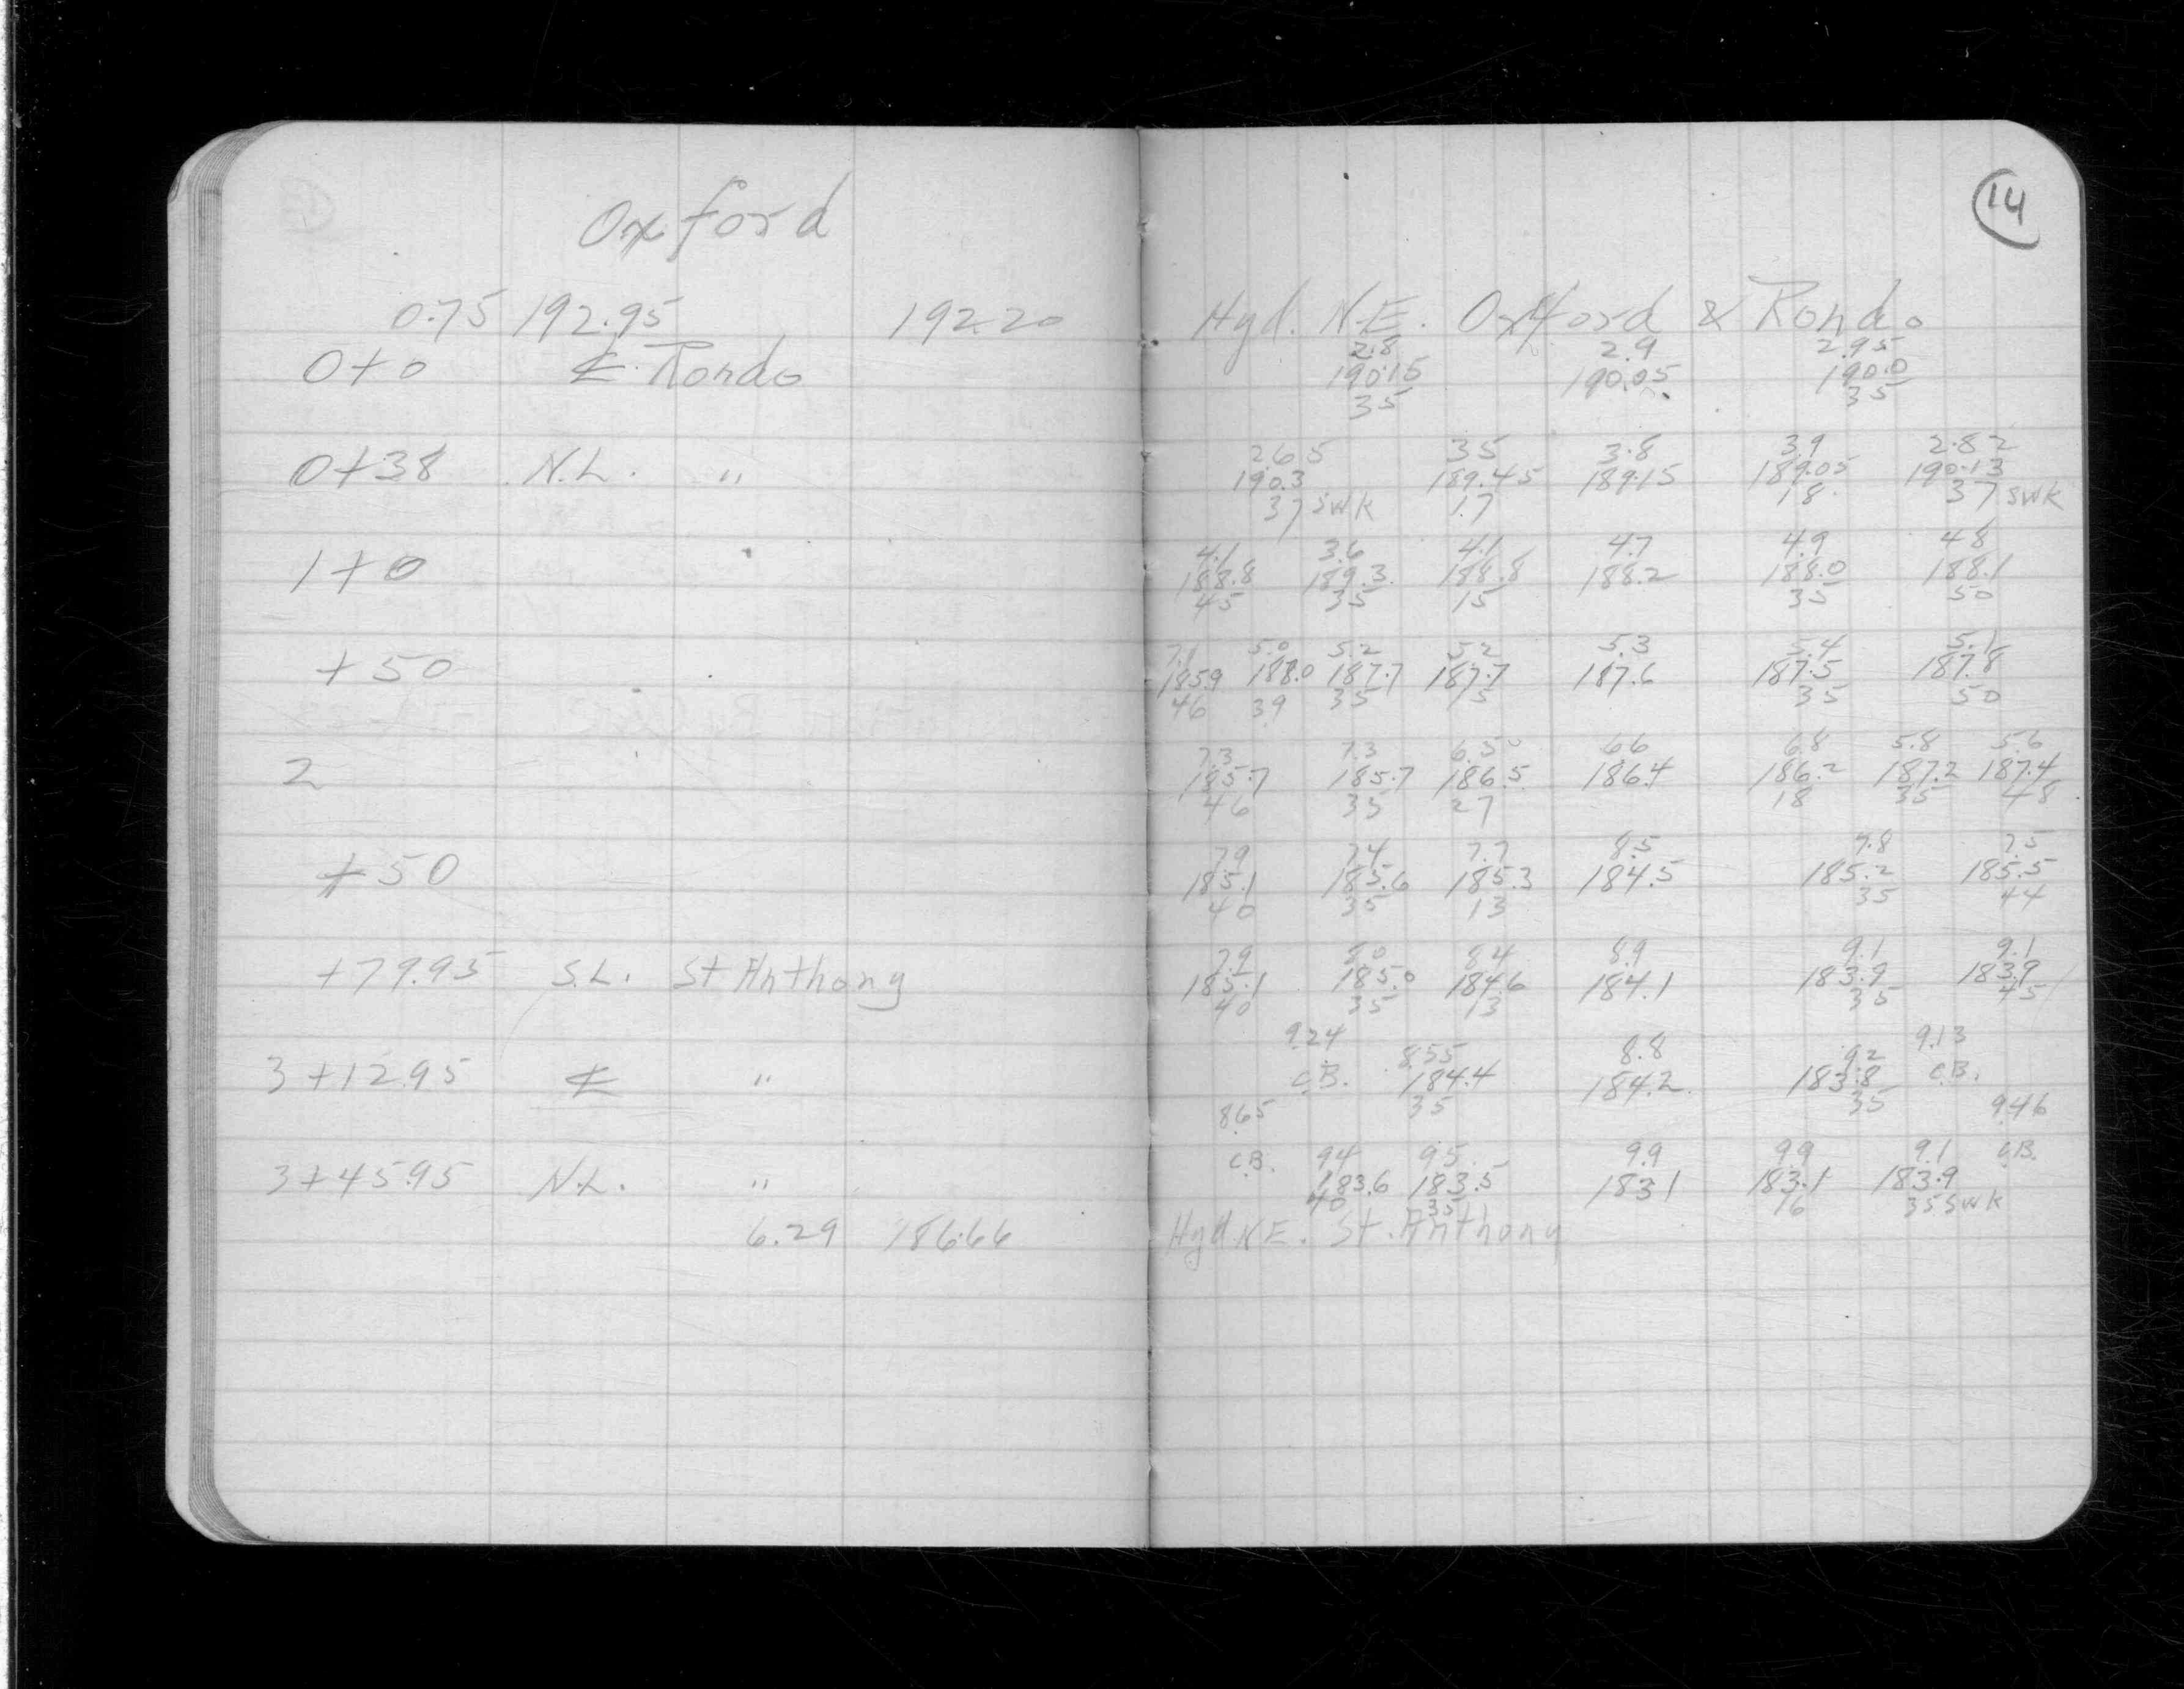 Oxford
0.75 192.95 192.20
0+0 ℄ Rondo
0+38 N.L. "
1+0
+50
2
+50
+79.95 S.L. St Anthony
3+12.95 ℄ "
3+45.95 N.L. "
6.29 186.66
14
Hyd. N.E. Oxford & Rondo
2.8 2.9 2.95
190.15 190.05 190.0
35 35
2.65 3.5 3.8 3.9 2.82
190.3 189.45 189.15 189.05 190.13
37 swk 17 18 37 swk
4.1 3.6 4.1 4.7 4.9 4.8
188.8 189.3 188.8 188.2 188.0 188.1
45 35 15 35 50
7.1 5.0 5.2 5.2 5.3 5.4 5.1
185.9 188.0 187.7 187.7 187.6 187.5 187.8
46 39 35 15 35 50
7.3 7.3 6.5 6.6 6.8 5.8 5.6
185.7 185.7 186.5 186.4 186.2 187.2 187.4
46 35 27 18 35 48
7.9 7.4 7.7 8.5 7.8 7.5
185.1 185.6 185.3 184.5 185.2 185.5
40 35 13 35 44
7.9 8.0 8.4 8.9 9.1 9.1
185.1 185.0 184.6 184.1 183.9 183.9
40 35 13 35 45
9.24 8.55 8.8 9.2 9.13
C.B. 184.4 184.2 183.8 C.B.
35 35
8.65 9.46
C.B. 9.4 9.5 9.9 9.9 9.1 C.B.
183.6 183.5 183.1 183.1 183.9
40 35 16 35 swk
Hyd N.E. St. Anthony